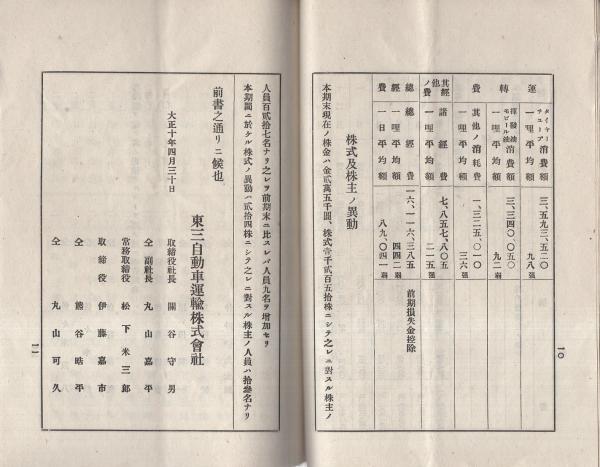 運轉費
タイヤーチューブ 消費額 三、五九三、五二〇
一哩平均額 九八強
揮發油モビール油 消費額 三、三四〇、〇五〇
一哩平均額 九二弱
其他ノ消耗費 一、三二五、〇一〇
一哩平均額 三六強
其他ノ經費
諸經費 七、八五七、八〇五
一哩平均額 二一五強
總經費
總經費 一六、一一六、三八五 前期損失金控除
一哩平均額 四四二弱
一日平均額 八九、〇四一弱
株式及株主ノ異動
本期末現在ノ株金ハ金貳萬五千圓、株式壹千貳百五拾株ニシテ之レニ對スル株主ノ
一〇
人員百貳拾七名ナリ之レヲ前期末ニ比スレバ人員九名ヲ增加セリ
本期間ニ於ケル株式ノ異動ハ貳拾四株ニシテ之レニ對スル株主ノ人員ハ拾參名ナリ
前書之通リニ候也
大正十年四月三十日
東三自動車運輸株式會社
取締役社長 關谷守男
仝副社長 丸山嘉平
常務取締役 松下米三郎
取締役 伊藤嘉市
仝 熊谷晧平
仝 丸山可久
一一